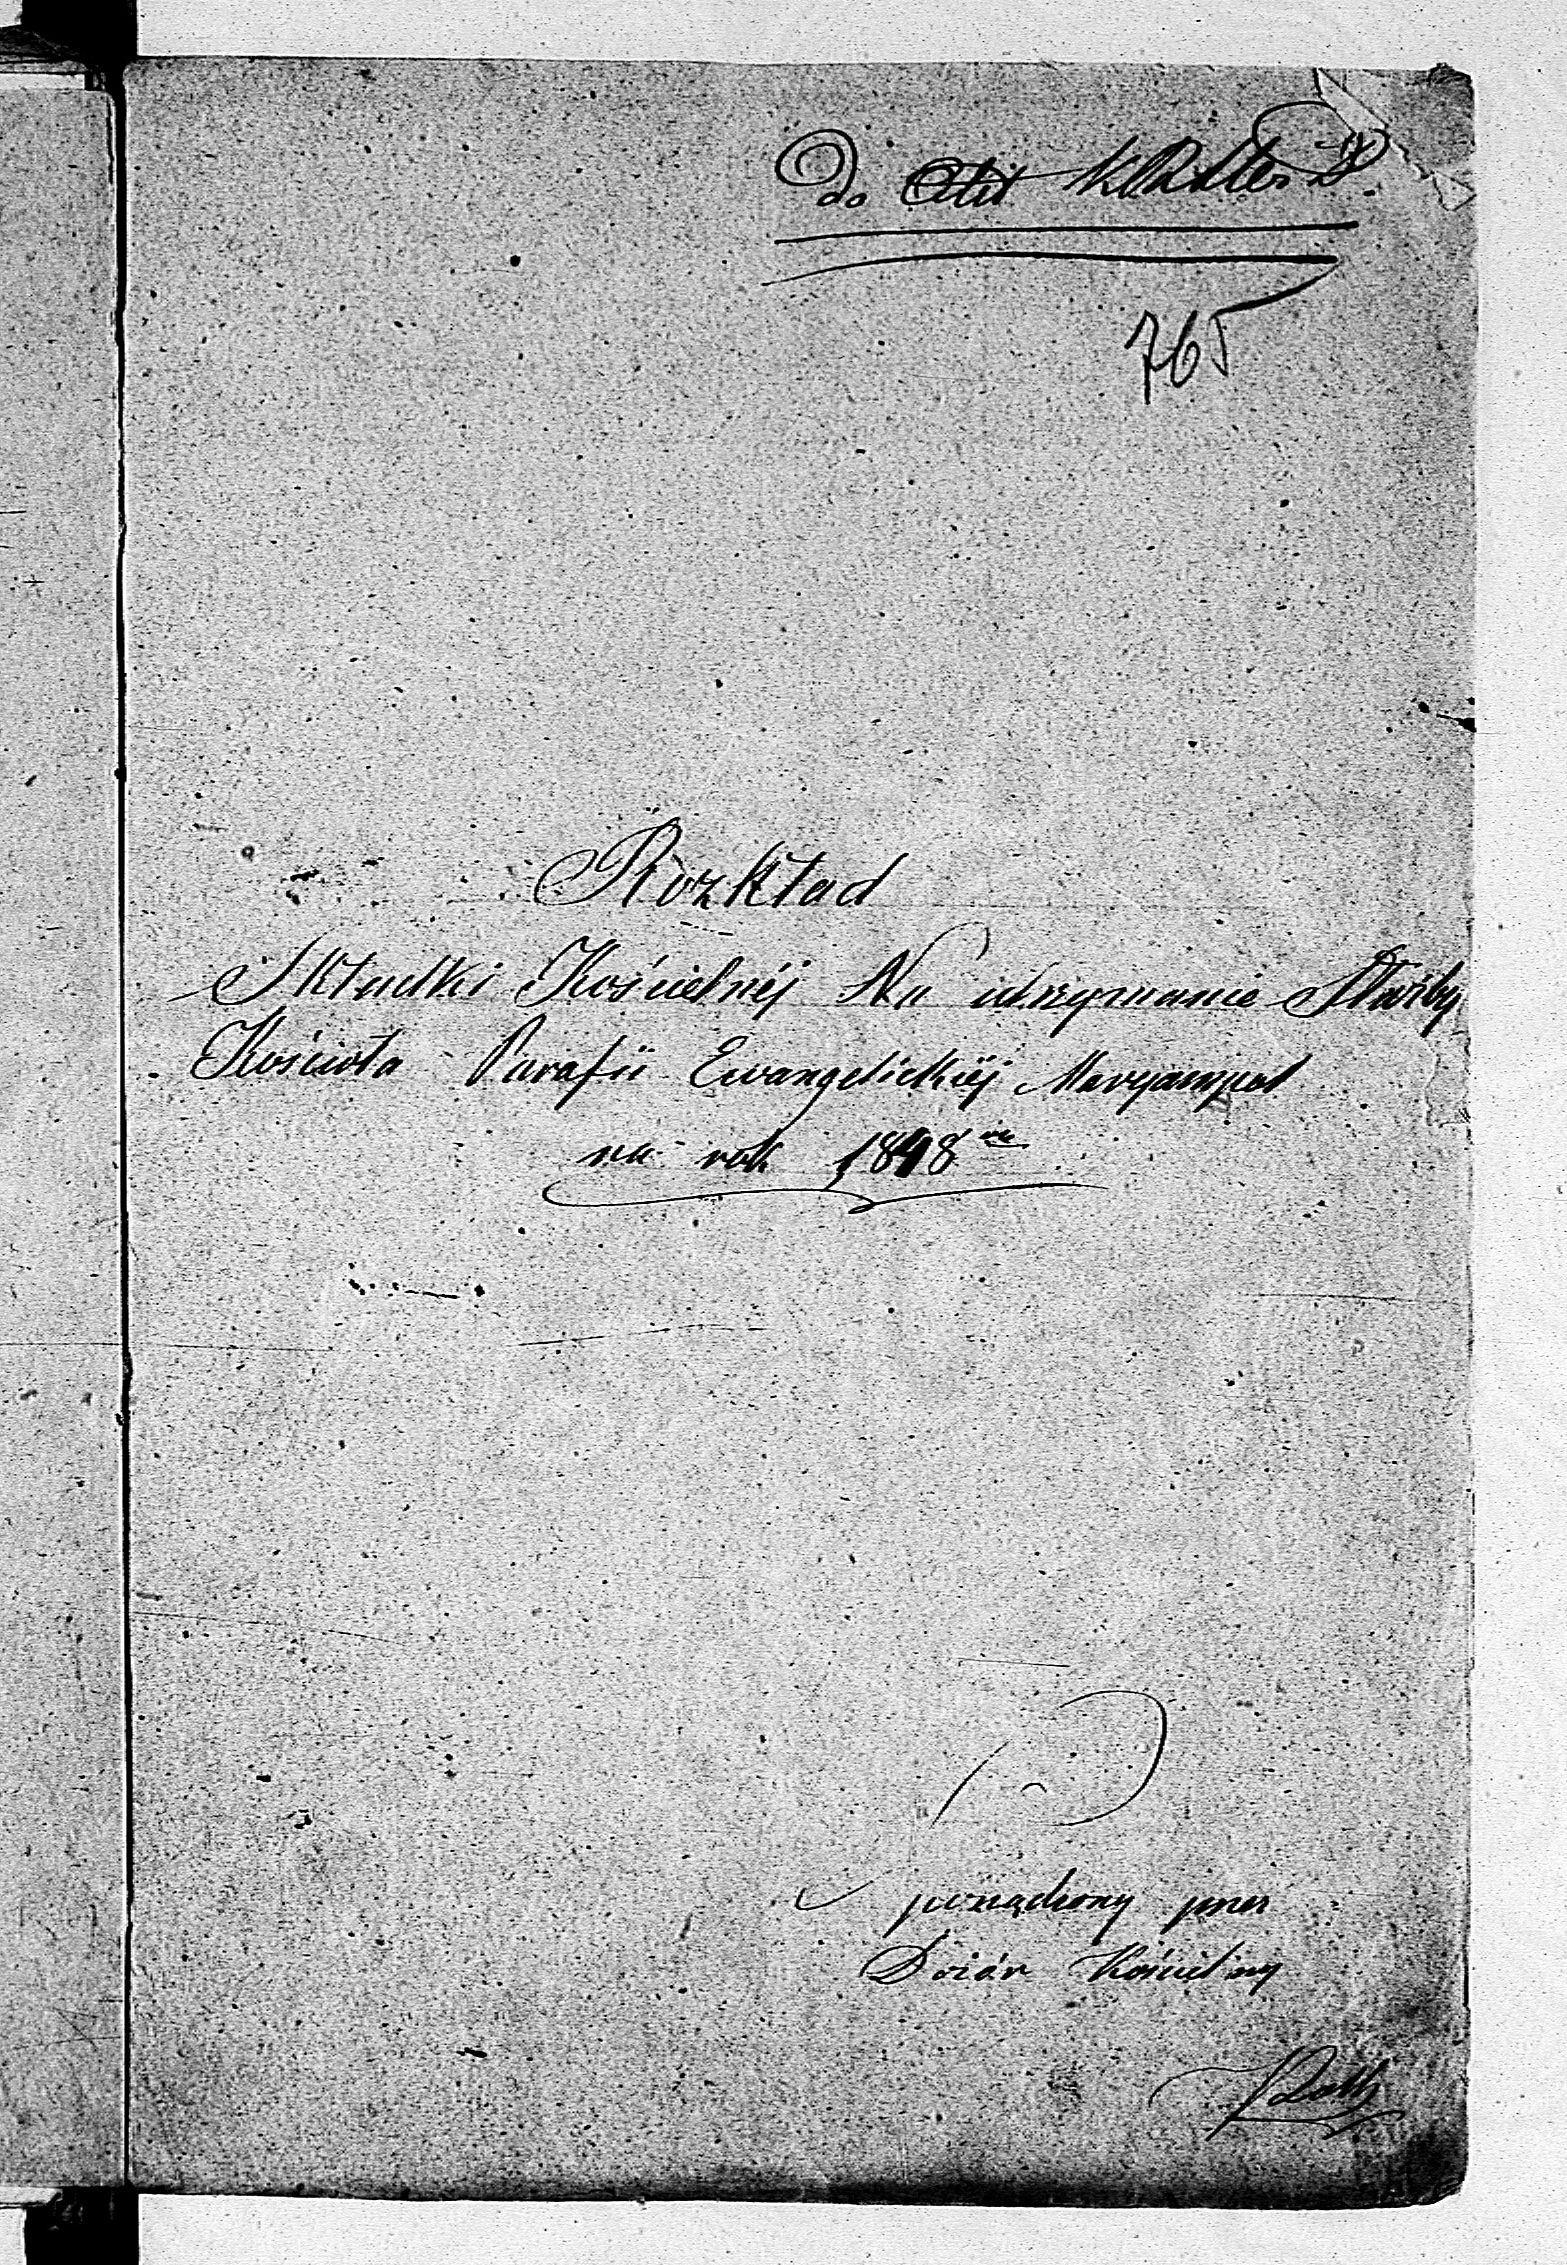 Do Akt
765
Rozkład
Składki Kościelnéj Na utrzymanie Służby
Kościoła Parafii Ewangelickiéj Maryampol
na rok 1848
porządzony przez
Dozór Kościelny